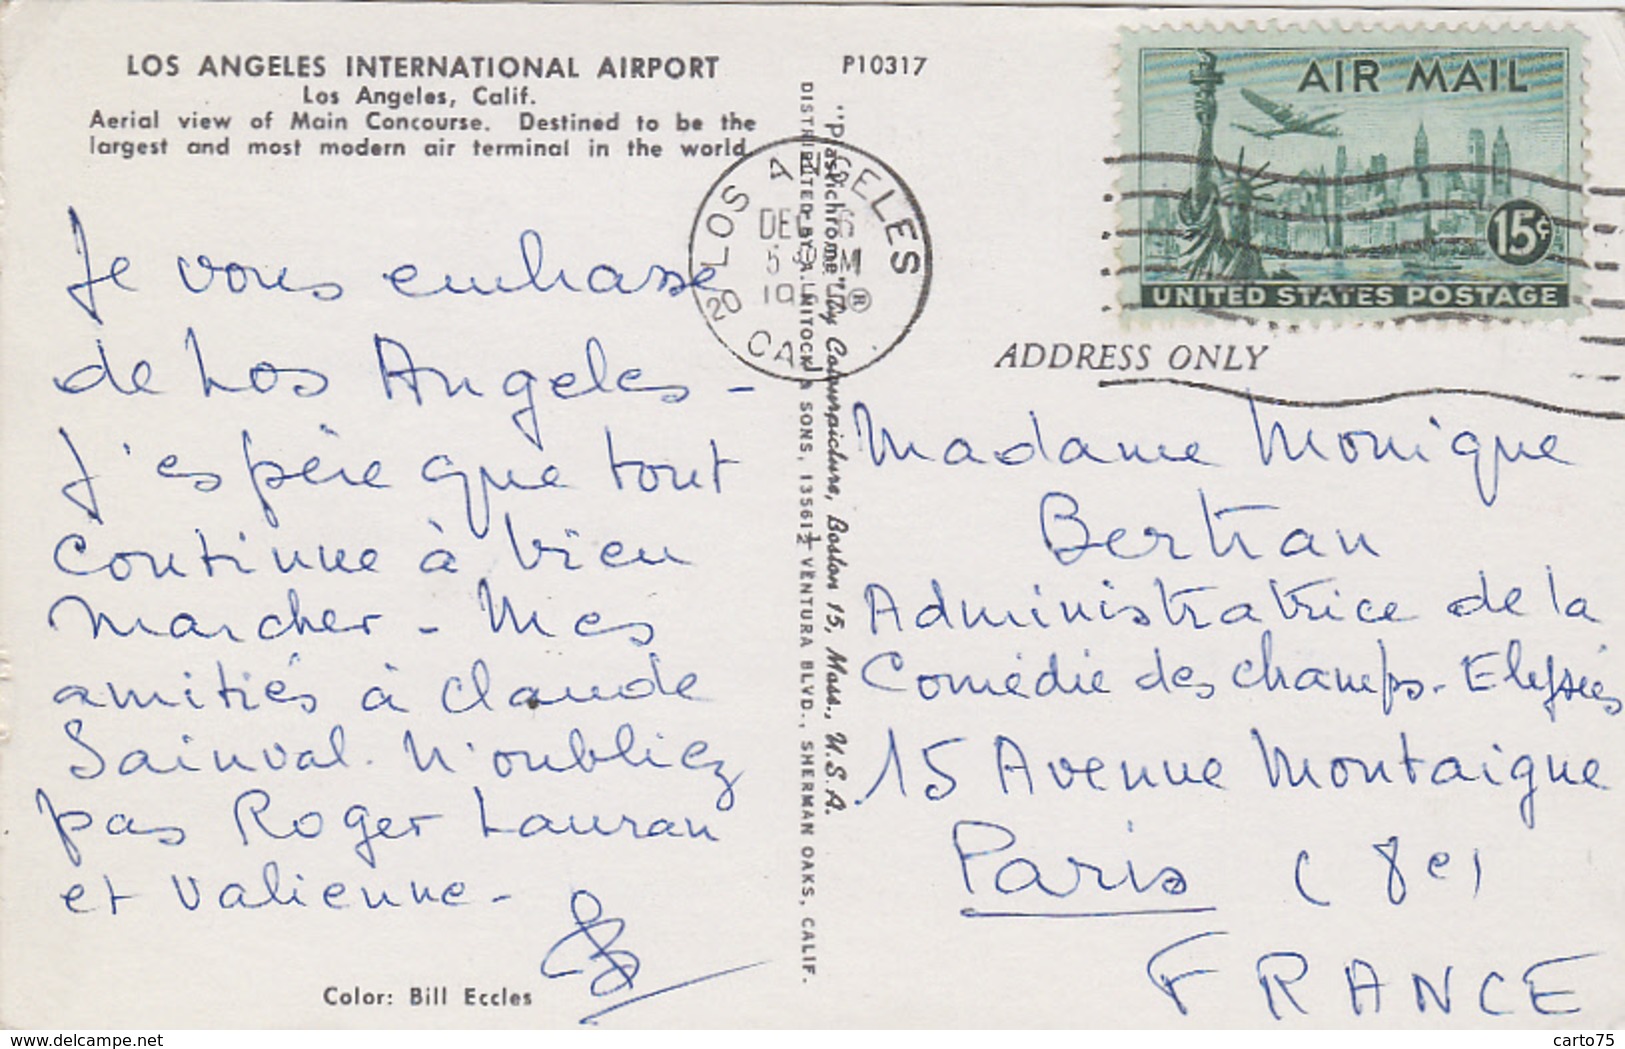 LOS ANGELES INTERNATIONAL AIRPORT
Los Angeles, Calif.
Aerial view of Main Concourse. Destined to be the
largest and most modern air terminal in the world.
P10317
AIR MAIL
15¢
UNITED STATES POSTAGE
LOS ANGELES
DEC 6
CAL
20
ADDRESS ONLY
Je vous embrasse
de Los Angeles -
J'espère que tout
continue à bien
marcher - Mes
amitiés à Claude
Sainval. N'oubliez
pas Roger Lauran
et Valienne -
Color: Bill Eccles
"Plastichrome"® by Colourpicture, Boston 15, Mass., U.S.A.
DISTRIBUTED BY A. MITOCK & SONS, 13561½ VENTURA BLVD., SHERMAN OAKS, CALIF.
Madame Monique
Bertran
Administratrice de la
Comédie des champs-Elysées
15 Avenue Montaigne
Paris (8e)
FRANCE
delcampe.net
carto75